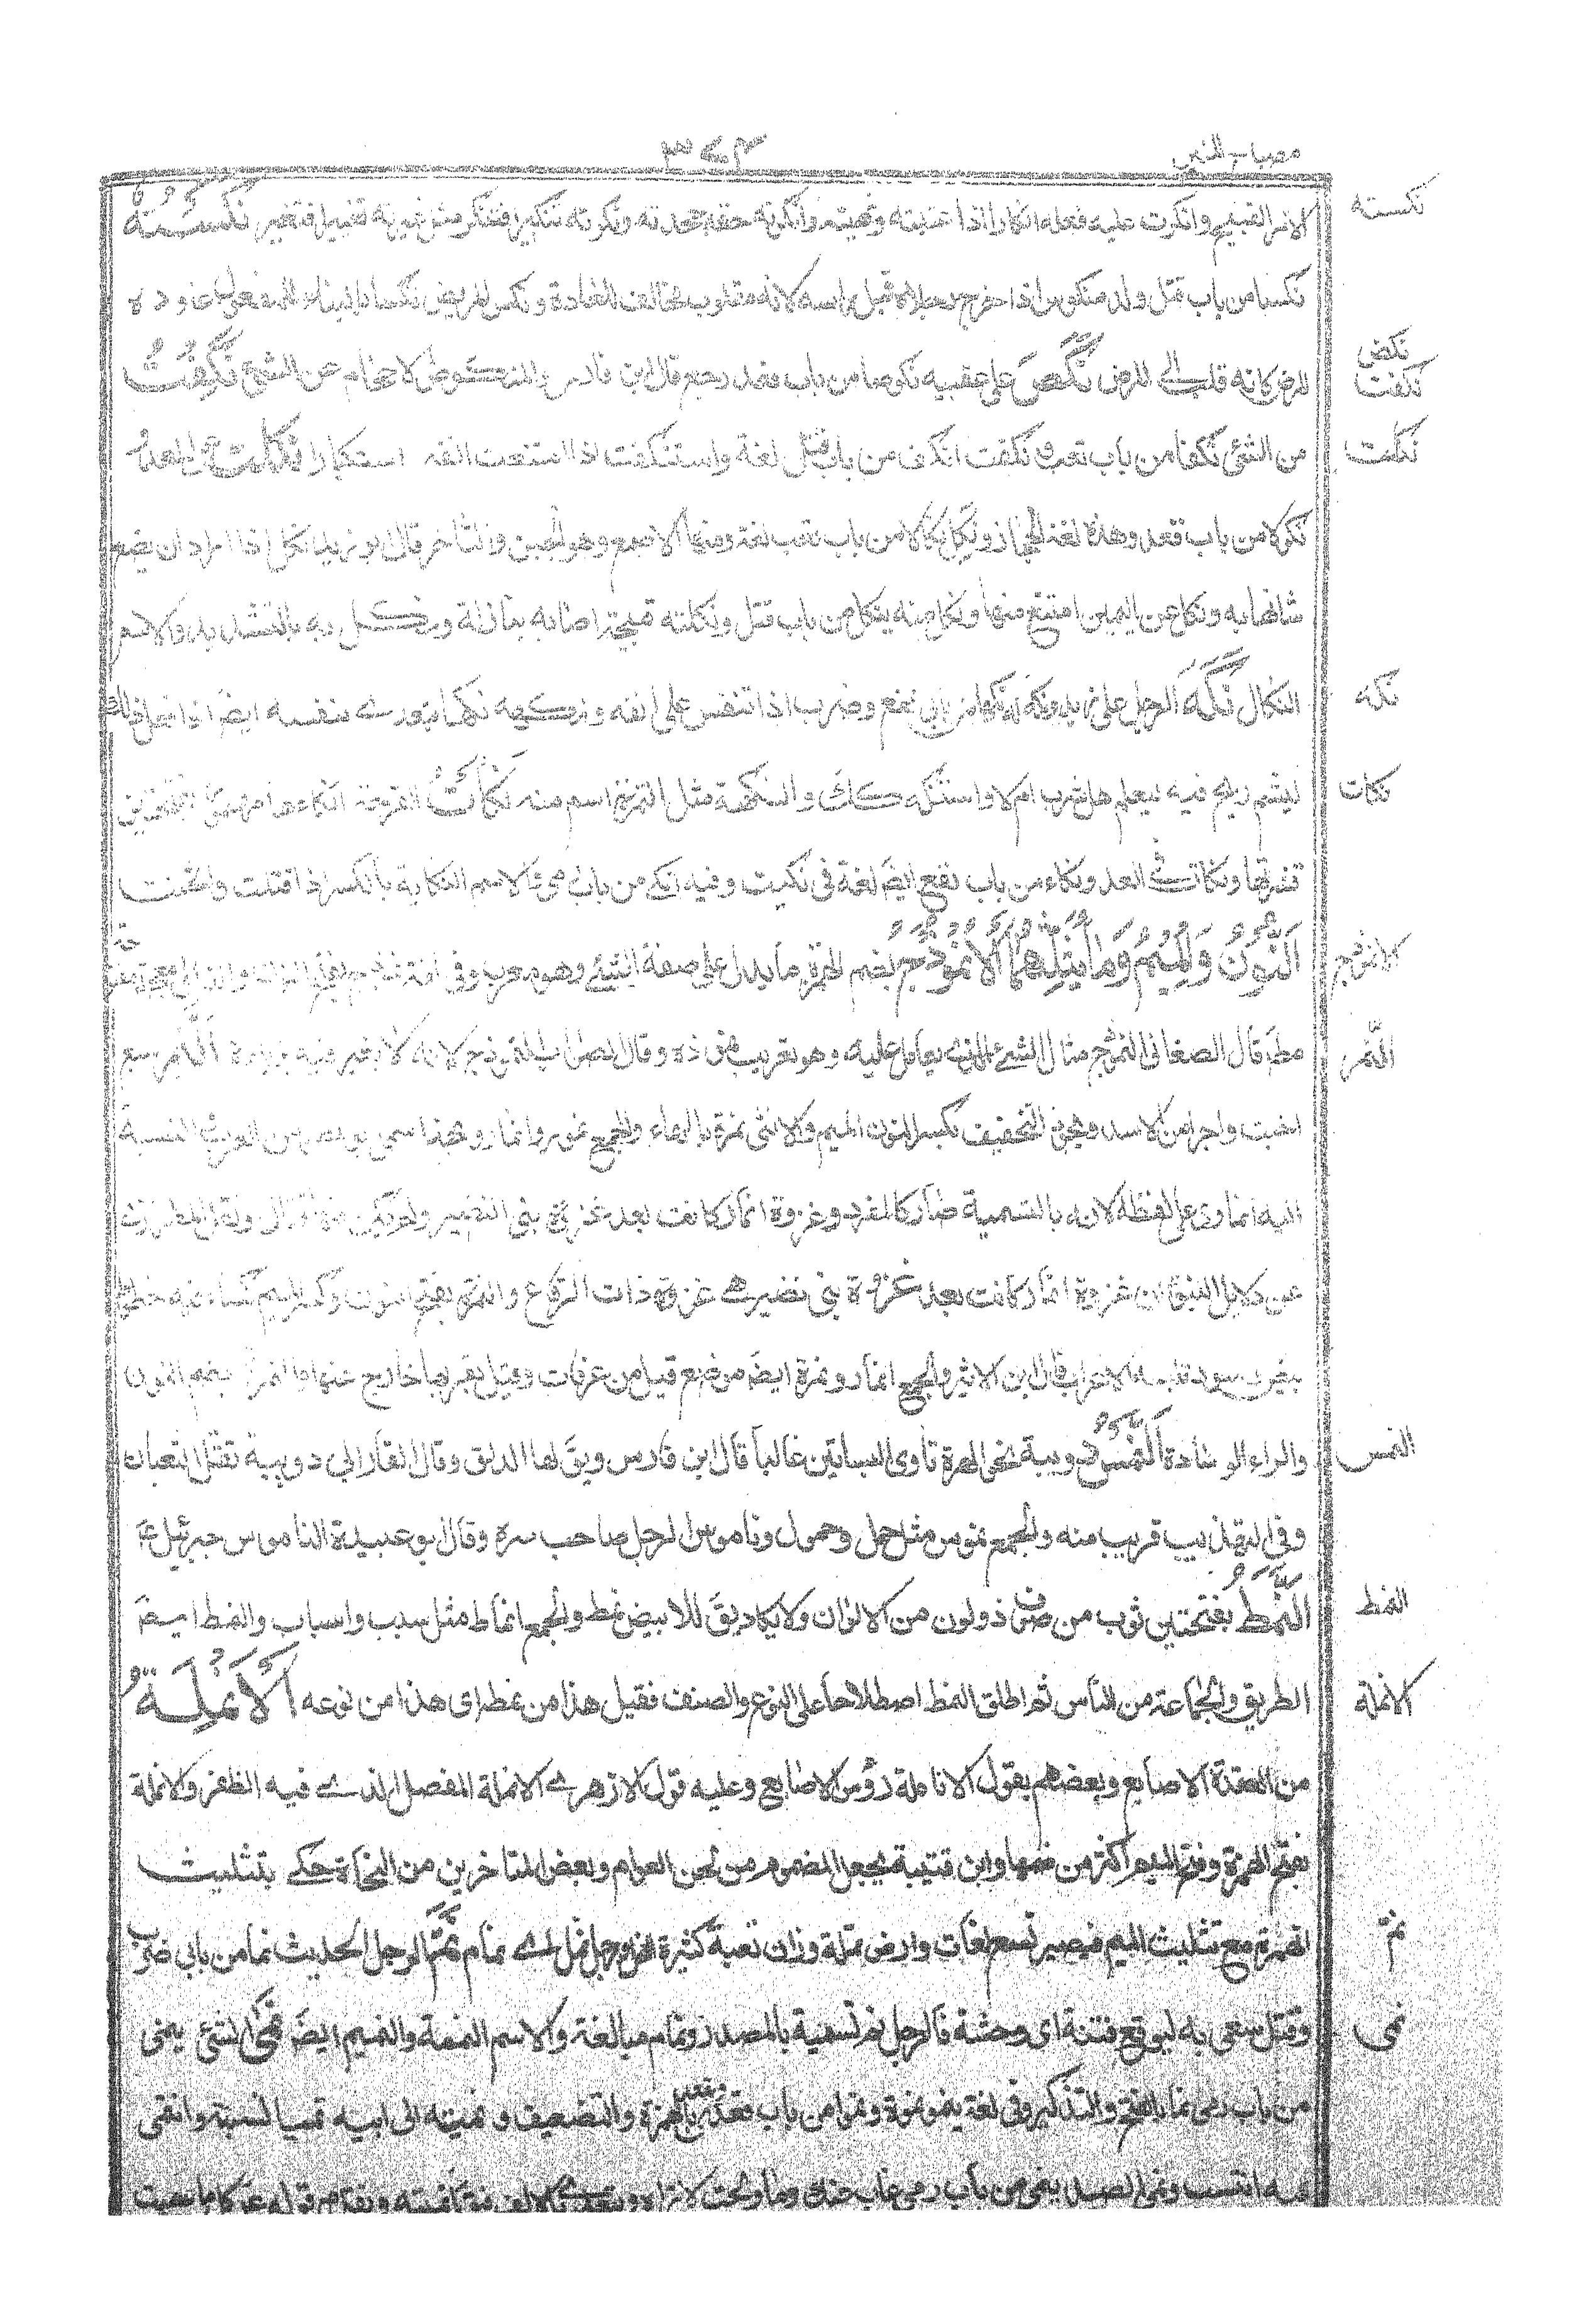 مصباح المنير
الامر القبيح وانكرت عليه فعله انكارا اذا عبته ونهيته وانكرته حقه جحدته ونكرته تنكيرا فتنكر مثل غيرته تغييرا فتغير نَكَسْتُهُ
نكسته
نكسا من باب قتل ولد منكوس اذا خرج رجلاه قبل راسه لانه مقلوب مخالف العادة ونكس المريض نكسا بالبناء للمفعول عاوده
المرض كانه قلب الى المرض نَكَصَ على عقبيه نكوصا من باب قعد رجع قال ابن فارس والنكوص الاحجام عن الشئ نَكِفْتُ
نكص
نكفت
من الشئ نكفا من باب تعب ونكفت انكف من باب قتل لغة واستنكفت اذا امتنعت انفة استكبارا نَكَلْتُ عن العدو
نكلت
نكولا من باب قعد وهذه لغة الحجاز ونكل نكلا من باب تعب لغة ومنعها الاصمعي وهو الجبن والتاخر قال ابو زيد نكل اذا اراد ان يصنع
شيئا فهابه ونكل عن اليمين امتنع منها ونكل به ينكل من باب قتل ونكلته قبيحة اصابه بنازلة ونكل به بالتشديد والاسم
النكال نَكَهَ الرجل على زيد ونكه له نكها من بابي نفع وضرب اذا تنفس على انفه ونكهه نكها يتعدى بنفسه ايضا اذا فعل ذلك
نكه
ليشم ريح فيه ليعلم هل شرب ام لا واستنكه كذلك والنكهة مثل التمرة اسم منه نَكَأْتُ القرحة انكاءها مهموز بفتحتين
نكات
قشرتها ونكات في العدو نكاء من باب نفع ايضا لغة في نكيت وفيه انكى من باب رمى والاسم النكاية بالكسر اذا اقتلت واثخنت
اَلنُّونُ وَالْمِيمُ وَمَا يُثَلِّثُهُمَا اَلْأُنْمُوذَجُ بضم الهمزة ما يدل على صفة الشئ وهو معرب وفي لغة نموذج بفتح النون والذال معجمة مفتوحة
الانموذج
مطلقا قال الصغاني النموذج مثال الشئ الذي يعمل عليه وهو تعريب نموذه وقال الصواب النموذج لانه لا تغيير فيه بزيادة اَلنَّمِرُ سبع
النمر
اخبث واجرا من الاسد ويجوز التخفيف بكسر النون الميم والانثى نمرة بالهاء والجمع نمور وانمار وبهذا سمي ابو بطن من العرب والنسبة
اليه انماري على لفظه لانه بالتسمية صار كالمفرد وغزوة انمار كانت بعد غزوة بني النضير ولم يكن فيها قتال ونقل المطرزي
عن دلائل النبوة ان غزوة انمار كانت بعد غزوة بني نضير هي غزوة ذات الرقاع والنمرة بفتح النون وكسر الميم كساء فيه خطوط
بيض وسود تلبسه الاعراب قال ابن الاثير والجمع انمار ونمرة ايضا موضع قيل من عرفات وقيل بقربها خارج عنها والنمرق بضم النون
والراء الوسادة اَلنِّمْسُ دويبة نحو الهرة تأوى البساتين غالبا قال ابن فارس ويق لها الدلق وقال الفارابي دويبة تقتل الثعبان
النمس
وفي التهذيب قريب منه والجمع نموس مثل حمل وحمول وناموس الرجل صاحب سره وقال ابو عبيدة الناموس جبرئيل ع
اَلنَّمَطُ بفتحتين ثوب من صوف ذو لون من الالوان ولا يكاد يق للابيض نمط والجمع انماط مثل سبب واسباب والنمط ايضا
النمط
الطريق والجماعة من الناس ثم اطلق النمط اصطلاحا على النوع والصنف فقيل هذا من نمط اى هذا من نوعه اَلْأَنْمِلَةُ
الانملة
من العقدة الاصابع وبعضهم يقول الانامل رؤس الاصابع وعليه قول الازهرى الانملة المفصل الذى فيه الظفر والانملة
بفتح الهمزة وفتح الميم اكثر من ضمها وابن قتيبة يجعل المضموم من لحن العوام وبعض المتاخرين من النحاة حكى تثليث
الهمزة مع تثليث الميم فيصير تسع لغات وارض نملة وزان تعبة كثيرة النمل ورجل نمل اى نمام نَمَّ الرجل الحديث نما من بابي ضرب
نم
وقتل سعى به ليوقع فتنة اى وحشة فالرجل نم تسمية بالمصدر ونمام مبالغة والاسم النميمة والنميم ايضا نَمَى الشئ ينمى
نمى
من باب رمى نماء بالفتح والتذكير وفي لغة ينمو نموة ونموا من باب قعد ويتعدى بالهمزة والتضعيف ونميته الى ابيه نميا نسبته وانتمى
اليه انتسب ونمى الصيد ينمى من باب رمى غاب عنك